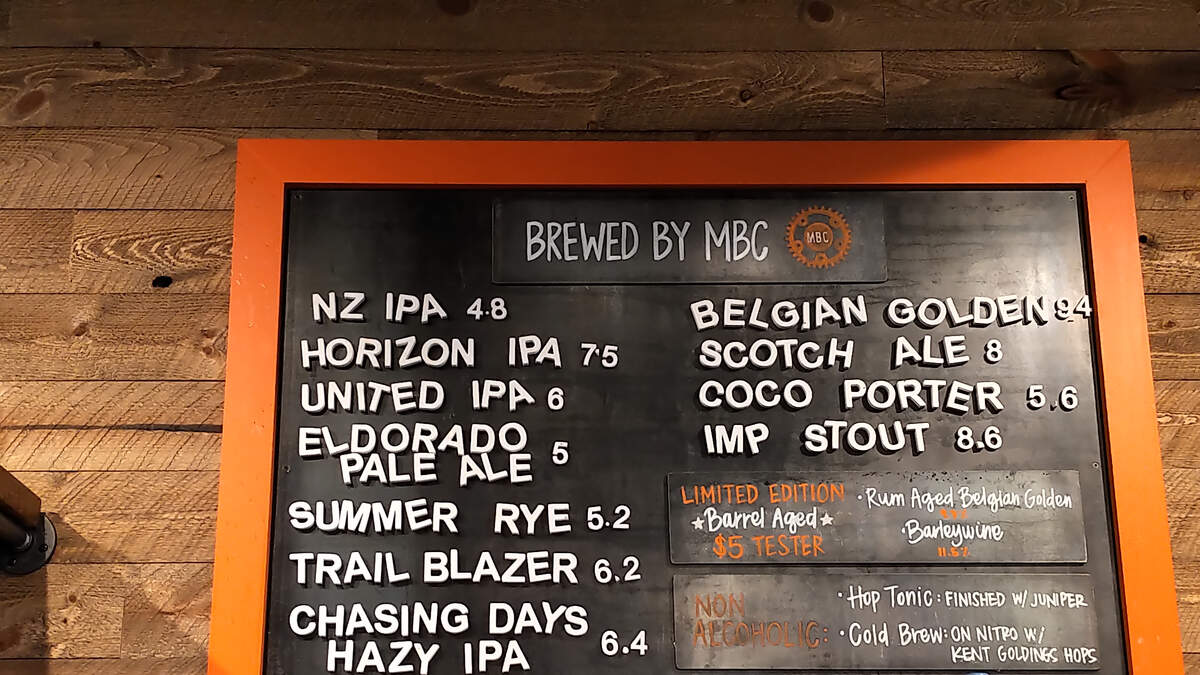 BREWED BY MBC
MBC
NZ IPA 4.8
HORIZON IPA 7.5
UNITED IPA 6
ELDORADO
PALE ALE 5
SUMMER RYE 5.2
TRAIL BLAZER 6.2
CHASING DAYS
HAZY IPA 6.4
BELGIAN GOLDEN 94
SCOTCH ALE 8
COCO PORTER 5.6
IMP STOUT 8.6
LIMITED EDITION
Barrel Aged
$5 TESTER
• Rum Aged Belgian Golden
• Barleywine
11.5%
NON
ALCOHOLIC:
• Hop Tonic: FINISHED W/ JUNIPER
• Cold Brew: ON NITRO W/
KENT GOLDINGS HOPS